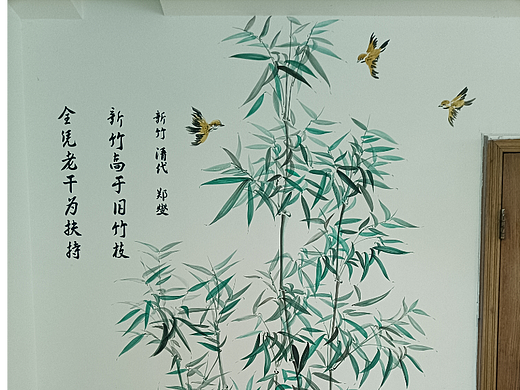 新竹 清代 郑燮
新竹高于旧竹枝
全凭老干为扶持